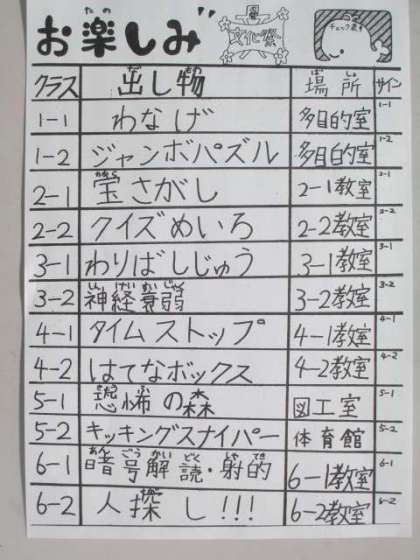 たの
お楽しみ
夏
文化祭
チェック表
クラス 出し物 場所 サイン
1-1 わなげ 多目的室 1-1
1-2 ジャンボパズル 多目的室 1-2
たから
2-1 宝さがし 2-1教室 2-1
2-2 クイズめいろ 2-2教室 2-2
3-1 わりばしじゅう 3-1教室 3-1
しんけいすいじゃく
3-2 神経衰弱 3-2教室 3-2
4-1 タイムストップ 4-1教室 4-1
4-2 はてなボックス 4-2教室 4-2
5-1 恐怖の森 図工室 5-1
5-2 キッキングスナイパー 体育館 5-2
ごうかいどく しゃてき
6-1 暗号解読・射的 6-1教室 6-1
6-2 人探し!!! 6-2教室 6-2